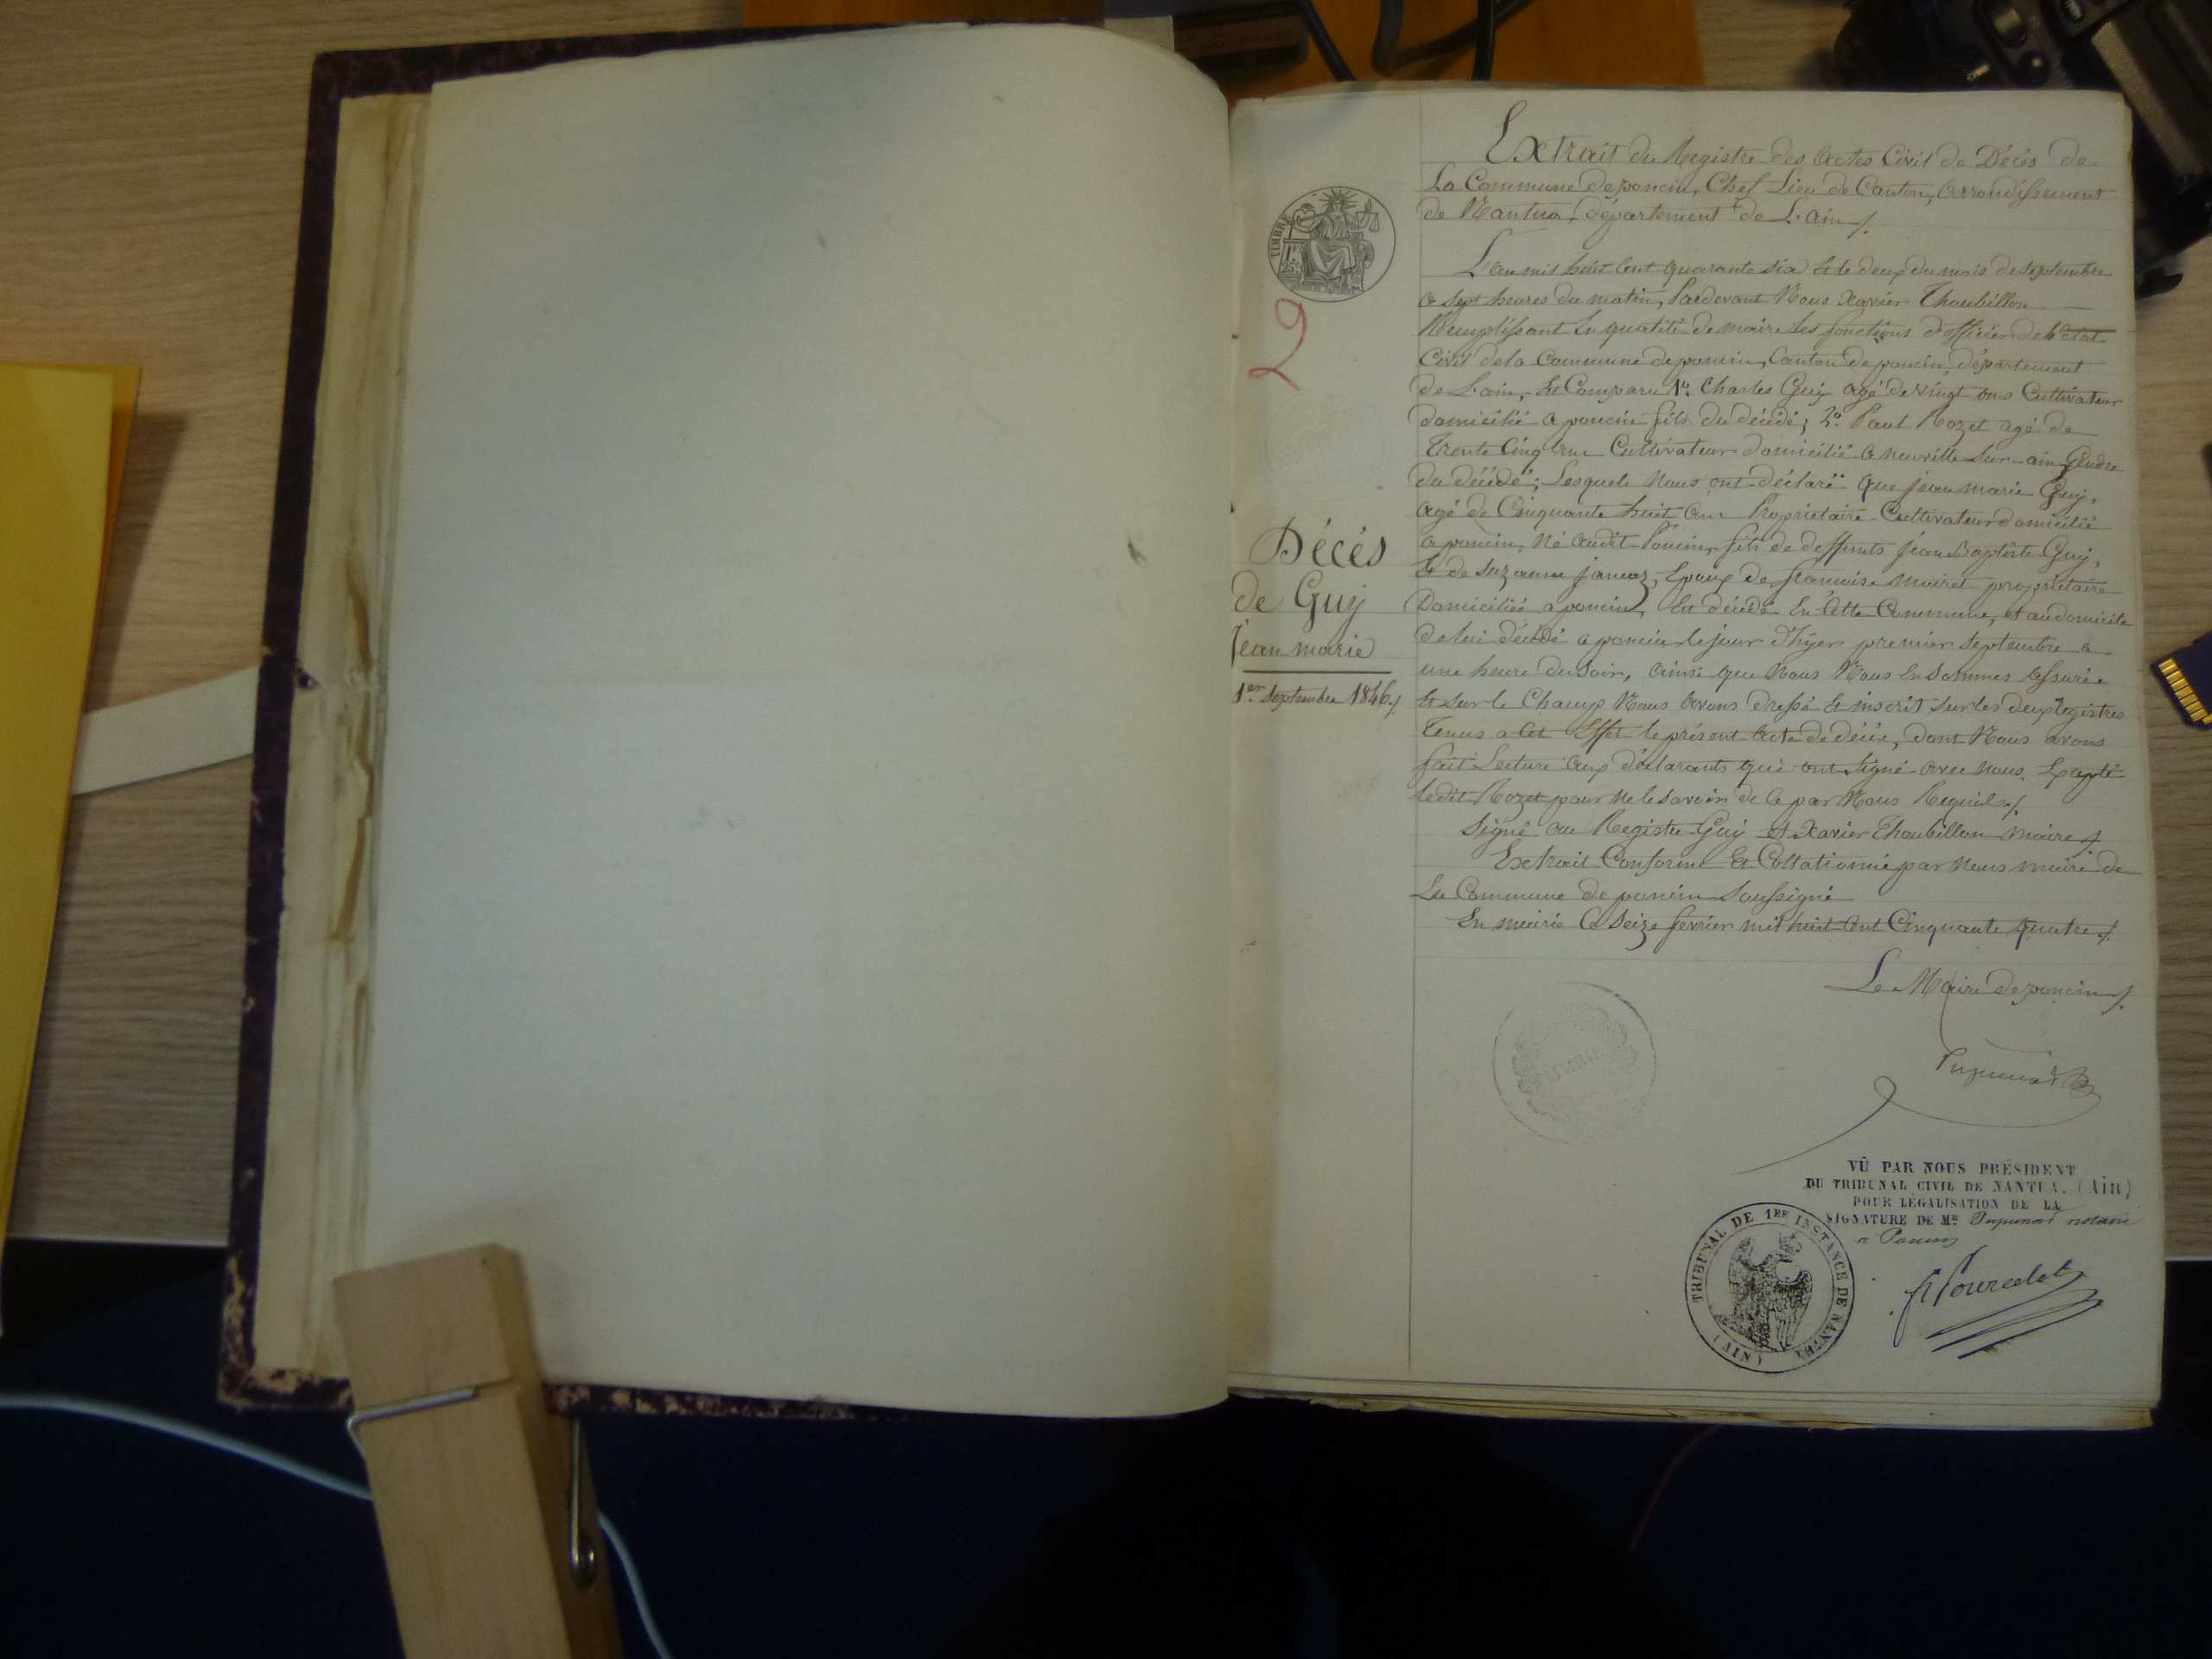 Extrait du Registre des Actes Civil de Décès de
La Commune de poncin, Chef Lieu de Canton, Arrondissement
de Nantua, département de L'ain /.
TIMBRE
29
L'an mil huit Cent quarante six Et le deux du mois de septembre
a sept heures du matin, Pardevant Nous Xavier Thoubillon
Remplissant En qualité de maire les fonctions d'officier de l'état
Civil de la Commune de poncin, Canton de poncin, département
de L'ain, Est Comparu 1º. Charles Guy agé de vingt ans Cultivateur
domicilié a poncin fils du décédé; 2º. Paul Rozet agé de
Trente Cinq ans Cultivateur domicilié a neuville sur-ain Gendre
du décédé; Lesquels Nous ont déclaré que jean marie Guy,
agé de Cinquante huit ans Propriétaire Cultivateur domicilié
a poncin, Né audit Poncin, fils de deffunts jean Baptiste Guy,
Et de suzanne janvoz, Epoux de françoise muiret propriétaire
Domiciliée a poncin, Est décédé En Cette Commune, et au domicile
de lui décédé a poncin le jour d'hyer premier septembre a
une heure du soir, ainsi que Nous Nous En sommes assurés
Et sur le Champ Nous Avons dressé Et inscrit sur les deux registres
Tenus a Cet Effet le présent Acte de décès, dont Nous avons
fait Lecture aux déclarants qui ont signé avec nous, Excepté
ledit Rozet pour ne le savoir de Ce par Nous Requis /.
Signé au Registre Guy et Xavier Thoubillon maire /.
Extrait Conforme Et Collationné par Nous maire de
La Commune de poncin Soussigné
En mairie Ce seize fevrier mil huit Cent Cinquante quatre /.
Décés
de Guy
Jean marie
1er. septembre 1846 /.
Le Maire de poncin /.
MAIRIE
VÛ PAR NOUS PRÉSIDENT
DU TRIBUNAL CIVIL DE NANTUA. (Ain)
POUR LÉGALISATION DE LA
SIGNATURE DE Mr. notaire
a Poncin
TRIBUNAL DE 1RE INSTANCE DE NANTUA
(AIN)